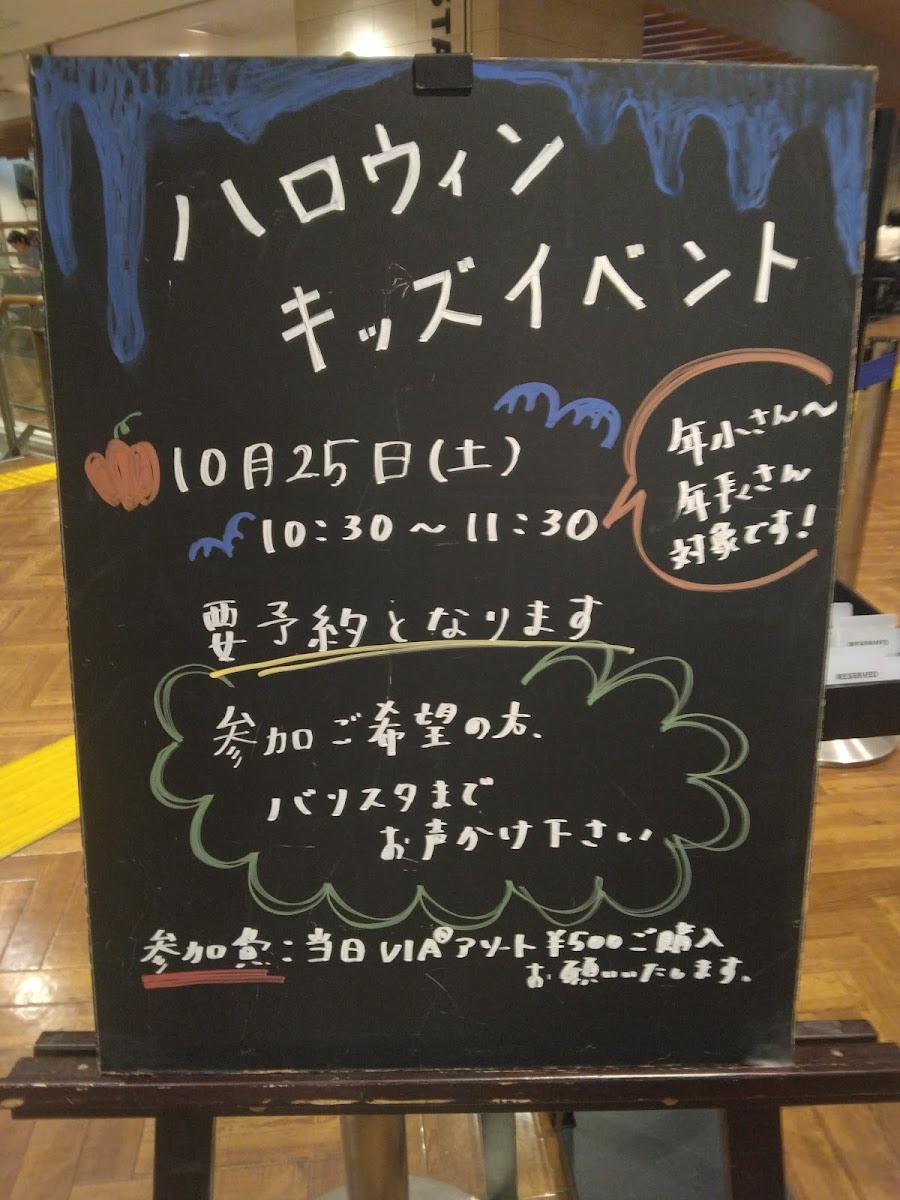 STA
ハロウィン
キッズイベント
10月25日(土)
10:30〜11:30
年小さん〜
年長さん
対象です!
要予約となります
参加ご希望の方、
バリスタまで
お声かけ下さい
参加費:当日VIA®アソート¥500ご購入
お願いいたします。
RESERVED
RESERVED